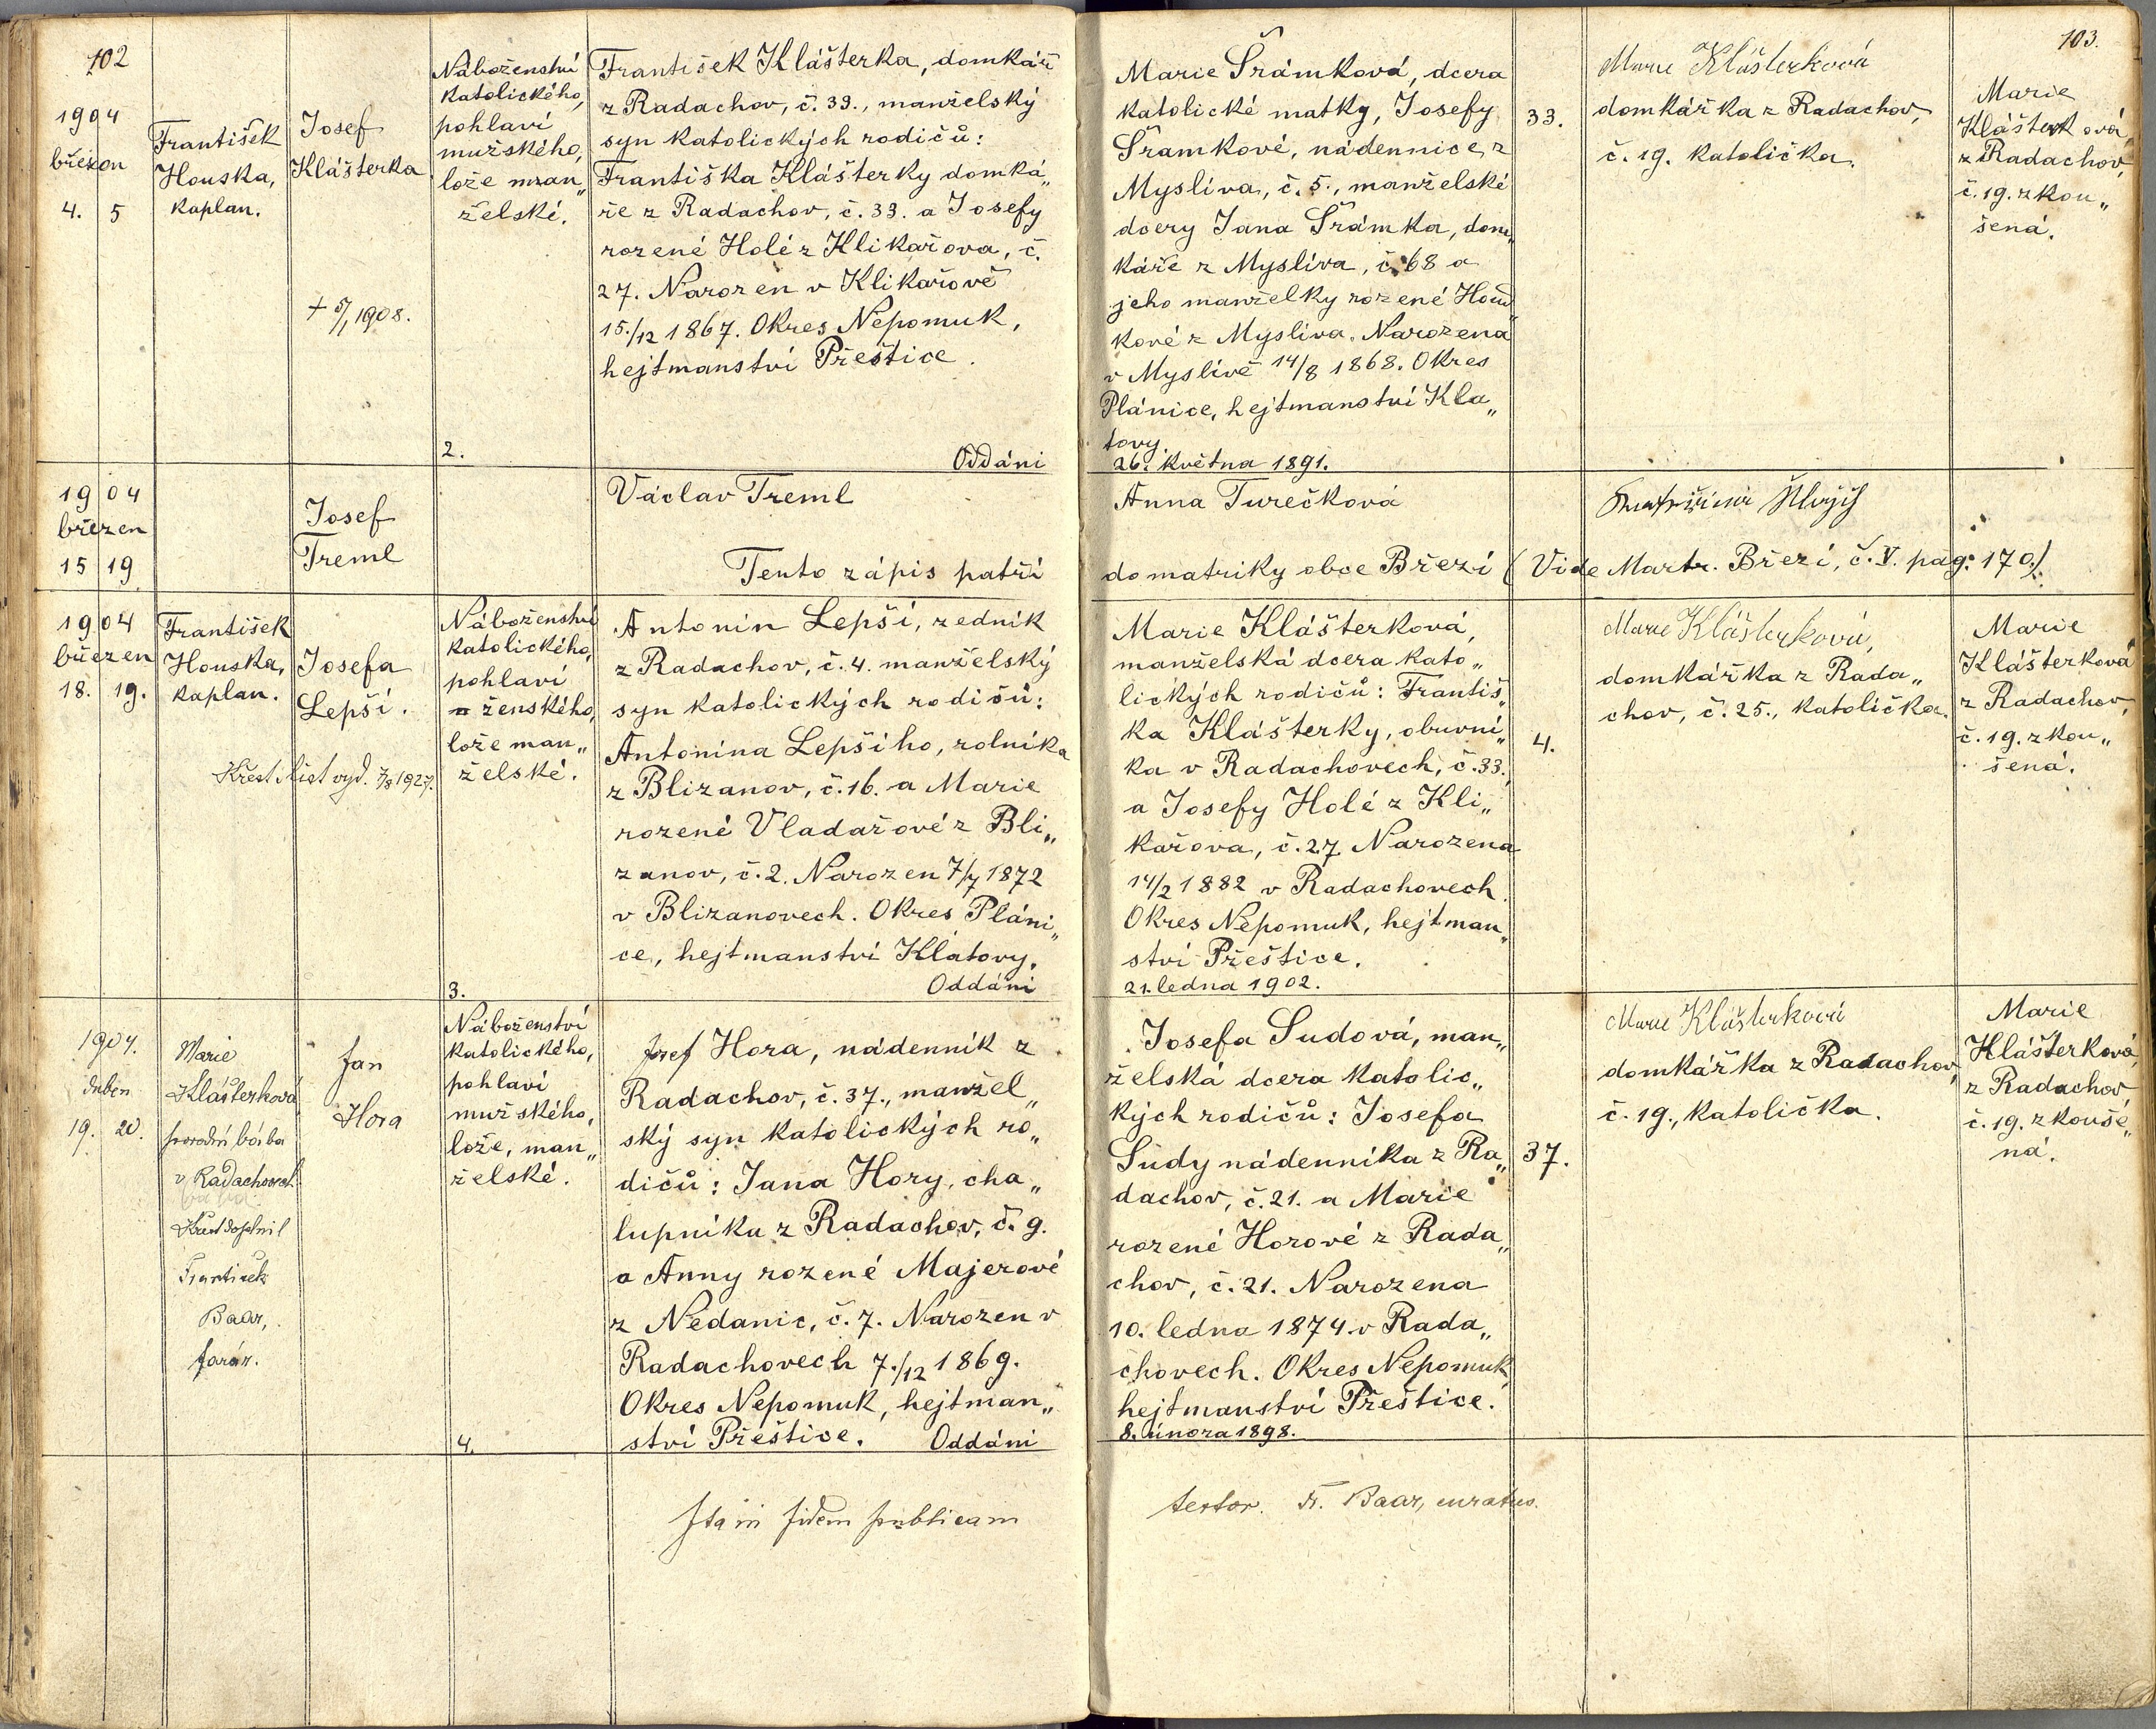 102
1904
březen
4. 5
František
Houska,
kaplan.
Josef
Klášterka
+ 5/1 1908.
Náboženství
katolického,
pohlaví
mužského,
lože man„
želské.
2.
František Klášterka, domkář
z Radachov, č. 33., manželský
syn katolických rodičů:
Františka Klášterky domká„
ře z Radachov, č. 33. a Josefy
rozené Holé z Klikařova, č.
27. Narozen v Klikařově
15./12 1867. Okres Nepomuk,
hejtmanství Přeštice.
Oddáni
Marie Šrámková, dcera
katolické matky, Josefy
Šramkové, nádennice z
Myslíva, č. 5., manželské
dcery Jana Šrámka, dom„
káře z Myslíva, č. 68 a
jeho manželky rozené
kové z Myslíva. Narozena
v Myslívě 14/8 1868. Okres
Plánice, hejtmanství Kla„
tovy.
26. května 1891.
33.
Marie Klášterková
domkářka z Radachov,
č. 19. katolička.
103.
Marie
Klášterková
z Radachov,
č. 19. zkou„
šená.
1904
březen
15 19
Josef
Treml
Václav Treml
Tento zápis patří
Anna Turečková
do matriky obce Březí (Vide Martr. Březí, č. V. pag. 170.)
1904
březen
18. 19.
František
Houska,
kaplan.
Josefa
Lepší.
Křest. list vyd. 7/8 1927.
Náboženství
katolického,
pohlaví
ženského,
lože man„
želské.
3.
Antonín Lepší, zedník
z Radachov, č. 4. manželský
syn katolických rodičů:
Antonína Lepšího, rolníka
z Blizanov, č. 16. a Marie
rozené Vladařové z Bli„
zanov, č. 2. Narozen 7/7 1872
v Blizanovech. Okres Pláni„
ce, hejtmanství Klatovy.
Oddáni
Marie Klášterková,
manželská dcera kato„
lických rodičů: Františ„
ka Klášterky, obuvní„
ka v Radachovech, č. 33.,
a Josefy Holé z Kli„
kařova, č. 27. Narozena
14/2 1882 v Radachovech.
Okres Nepomuk, hejtman„
ství Přeštice.
21. ledna 1902.
4.
Marie Klášterková,
domkářka z Rada„
chov, č. 25., katolička.
Marie
Klášterková
z Radachov,
č. 19. zkou„
šená.
1904.
duben
19. 20.
Marie
Klášterková
porodní bába
v Radachovech.
Křest doplnil
František
Baar,
farář.
Jan
Hora
Náboženství
katolického,
pohlaví
mužského,
lože, man„
želské.
4.
Josef Hora, nádenník z
Radachov, č. 37., manžel„
ský syn katolických ro„
dičů: Jana Hory, cha„
lupníka z Radachov, č. 9.
a Anny rozené Majerové
z Nedanic, č. 7. Narozen v
Radachovech 7./12 1869.
Okres Nepomuk, hejtman„
ství Přeštice. Oddáni
Josefa Sudová, man„
želská dcera katolic„
kých rodičů: Josefa
Sudy nádenníka z Ra„
dachov, č. 21. a Marie
rozené Horové z Rada„
chov, č. 21. Narozena
10. ledna 1874 v Rada„
chovech. Okres Nepomuk,
hejtmanství Přeštice.
8. února 1898.
37.
Marie Klášterková
domkářka z Radachov,
č. 19., katolička.
Marie
Klášterková,
z Radachov,
č. 19. zkouše„
ná.
Ita in fidem publicam
testor. Fr. Baar, curatus.